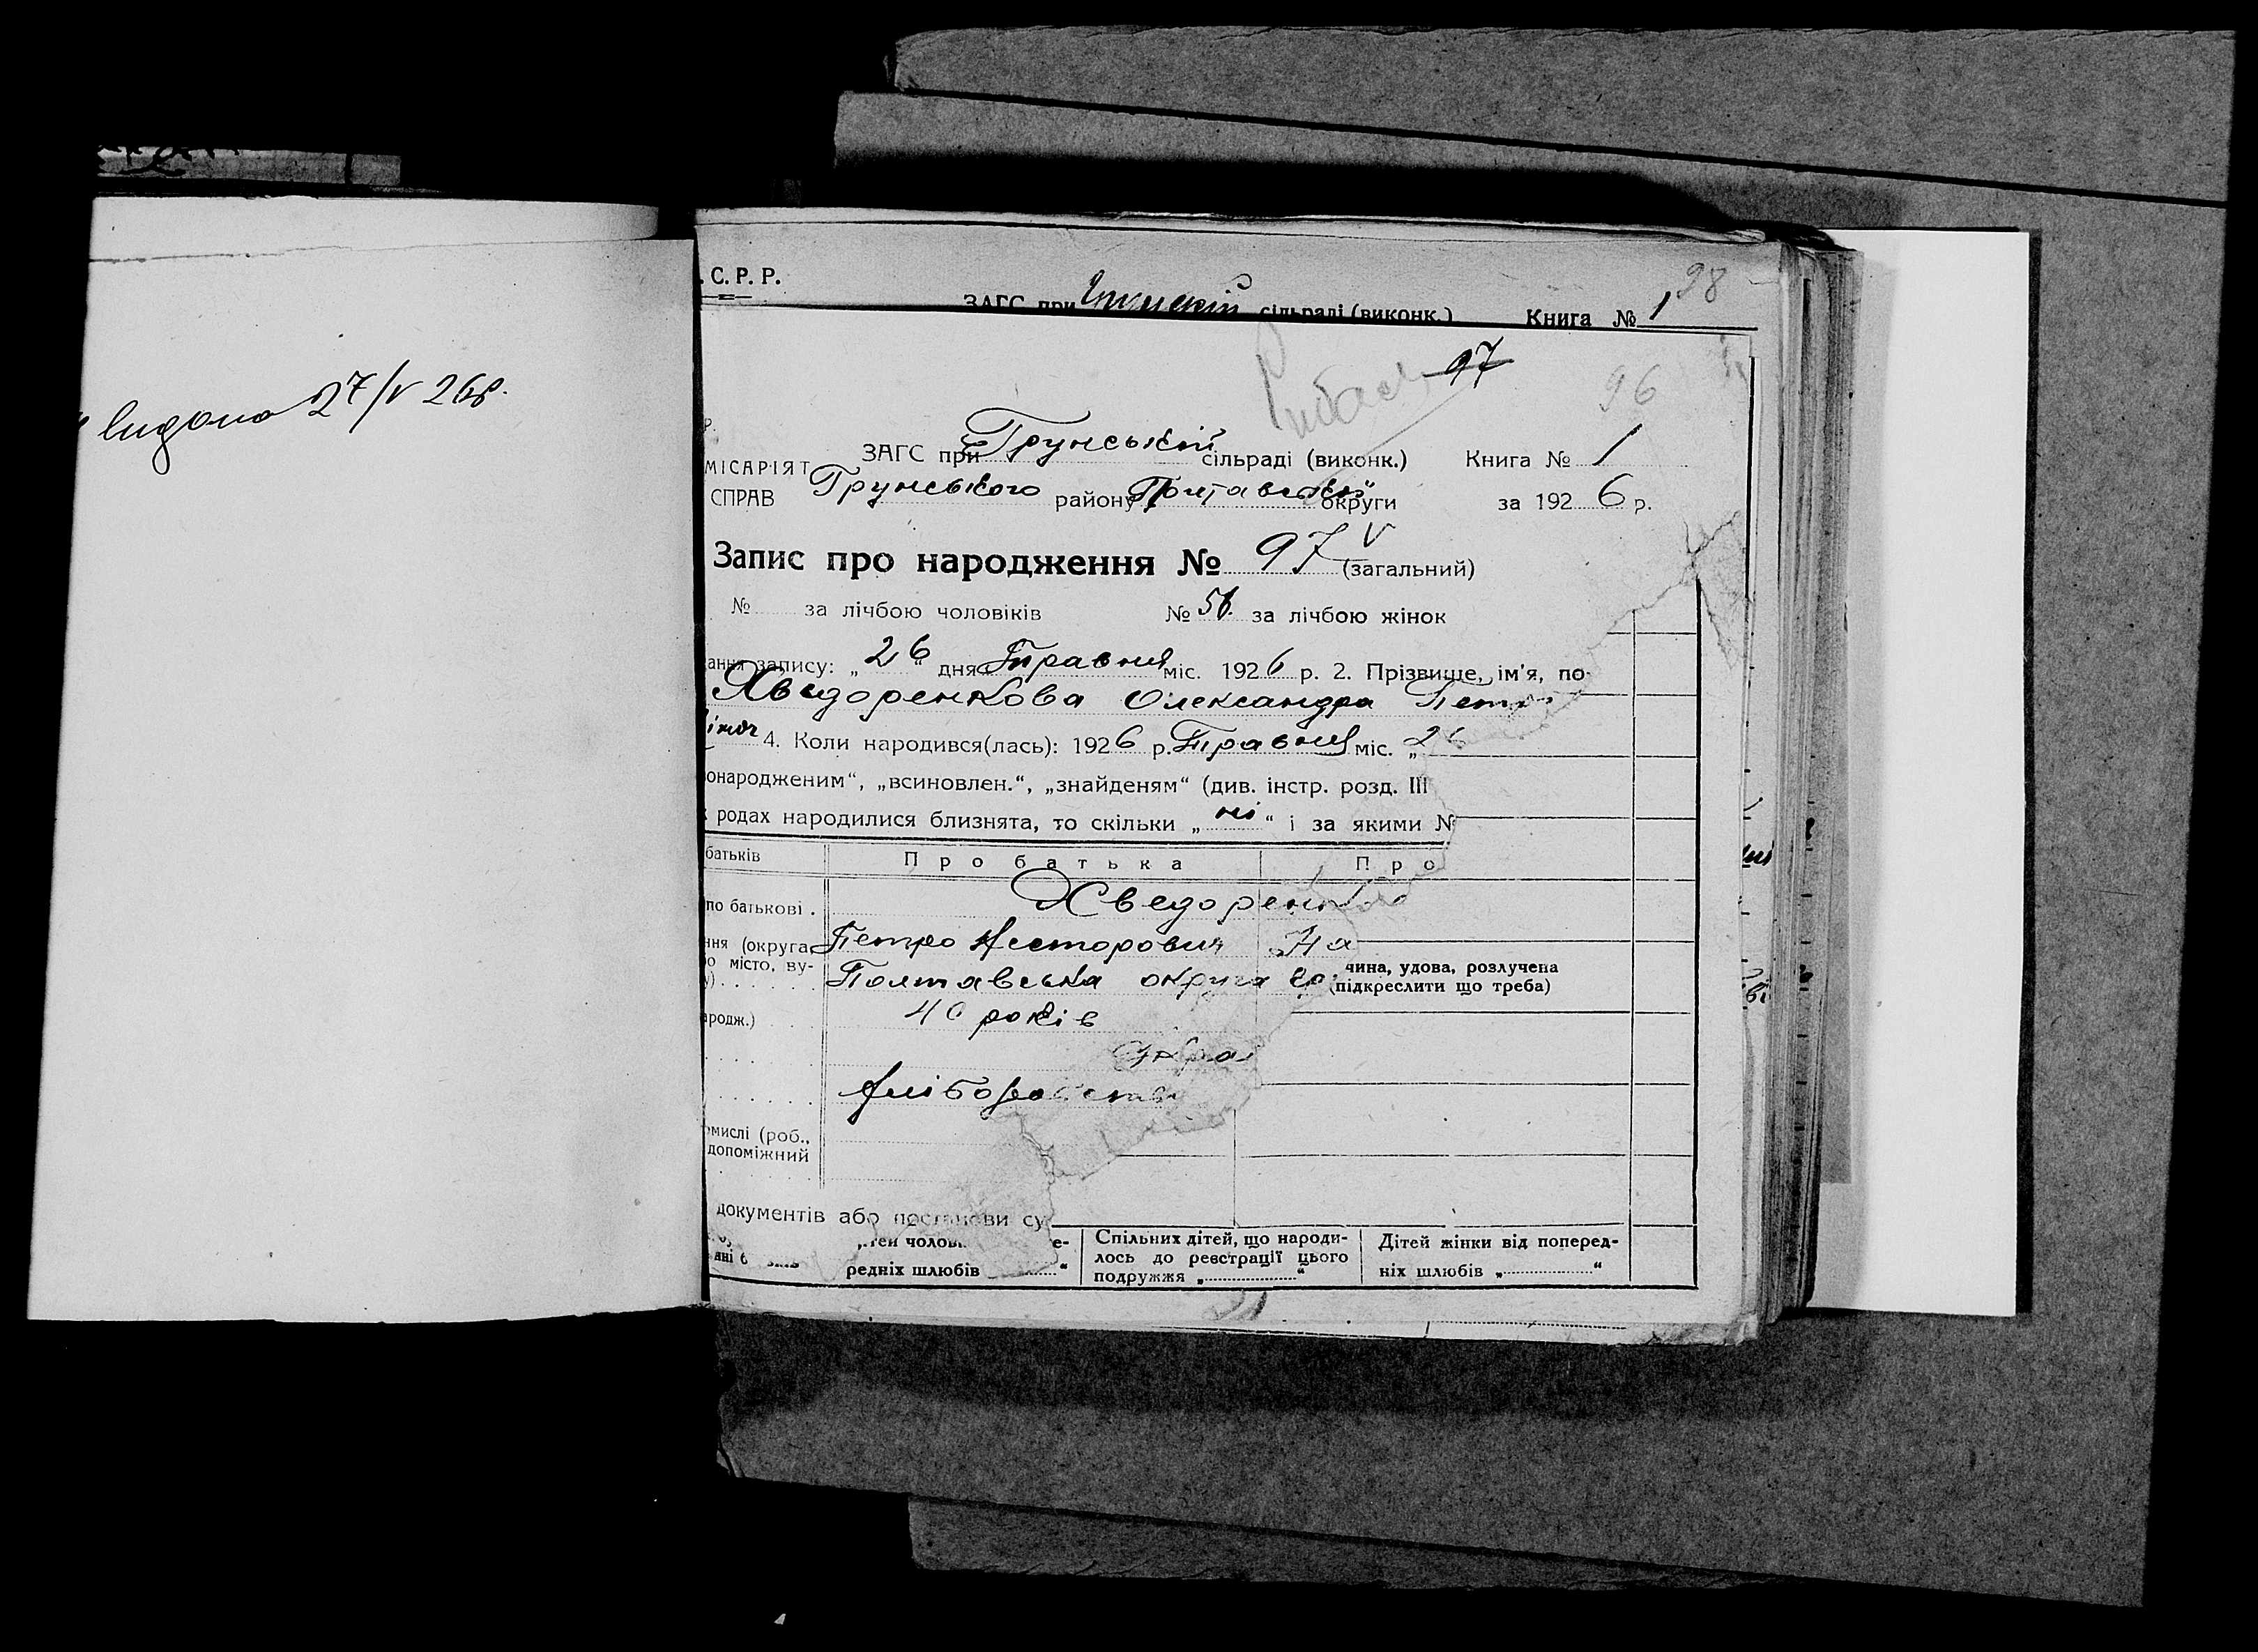 видано 27/V 26р.
. С. Р. Р.
98
ЗАГС при сільраді (виконк.) Книга № 1
97
96
ЗАГС при Грунській сільраді (виконк.) Книга № 1
МІСАРІЯТ
СПРАВ Грунського району Полтавської округи за 1926 р.
Запис про народження № 97 (загальний)
№ за лічбою чоловіків № за лічбою жінок
ання запису: „26“ дня Травня міс. 1926 р. 2. Прізвище, ім'я, по-
Хведоренкова Олександра Петр
4. Коли народився(лась): 1926 р. Травня міс. „26
онародженим“, „всиновлен.“, „знайденям“ (див. інстр. розд. III
родах народилися близнята, то скільки „ні“ і за якими №
батьків Про батька Про
по батькові . Хведоренко
ння (округа, Петро Несторович На
о місто, ву- чина, удова, розлучена
у) . . . . . . Полтавська округа (підкреслити що треба)
ародж.) . . . 40 років
Укра
Хлібороб
омислі (роб.,
допоміжний
документів або постанови су
тей чолові е- Спільних дітей, що народи- Дітей жінки від поперед-
редніх шлюбів „ “ лось до реєстрації цього ніх шлюбів „ “
подружжя „ “